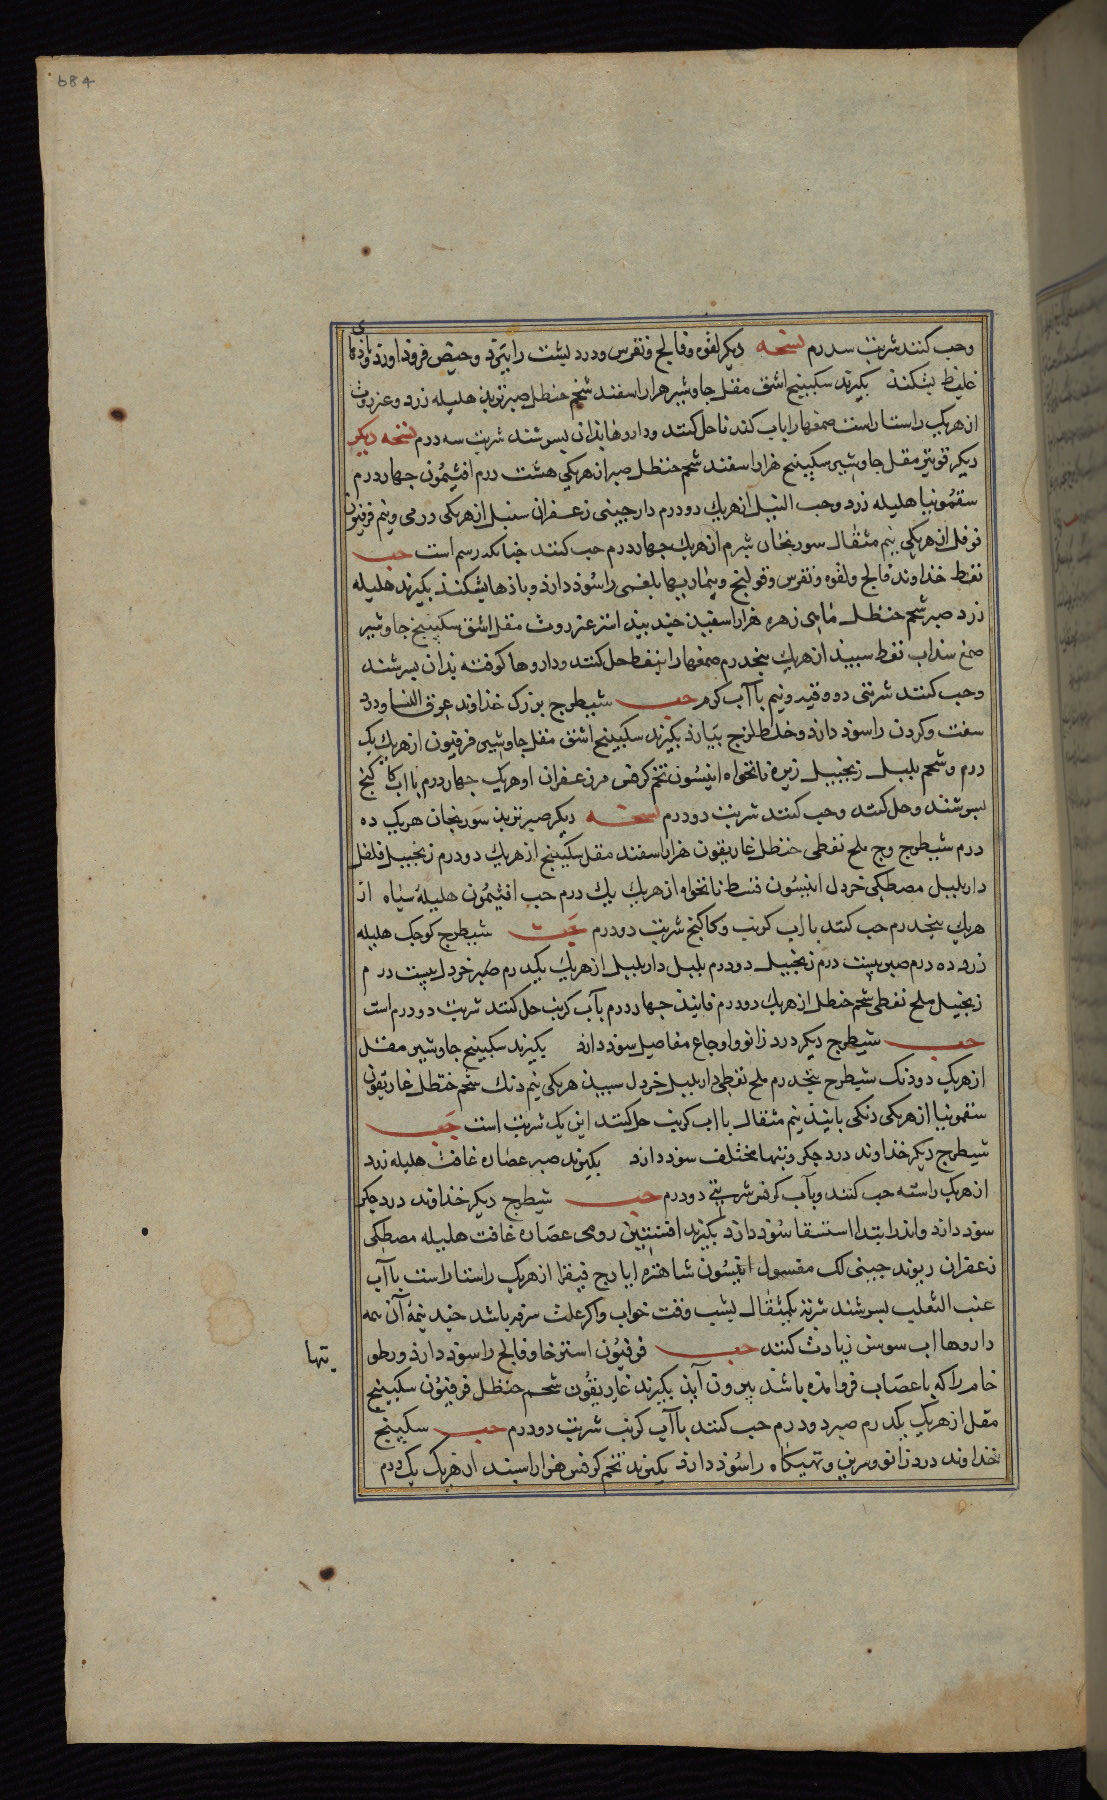 684
وحب کنند شربت سه درم نسخه دیکر لقوه وفالج ونقرس ودرد پشت را ببرد وحیض فرود اورد وباذها
غلیظ بشکند بکیرند سکبینج اشق مقل جاوشیر هزار اسفند شحم حنظل صبر تربد هلیله زرد وعنزروت
از هریک راستا راست صمغها را باب کند نا حل کنند وداروها بذان بسرشند شربت سه درم نسخه دیکر
دیکر قوی‌تر مقل جاوشیر سکبینج هزار اسفند شحم حنظل صبر از هریکی هشت درم افتیمون چهار درم
سقمونیا هلیله زرد وحب النیل از هریک دو درم دارچینی زعفران سنبل از هریکی درمی ونیم فرفیون
نوفل از هریکی نیم مثقال سورنجان شبرم از هریک چهار درم حب کنند چنانکه رسم است حب
نفط خداوند فالج ولقوه ونقرس وقولنج وبیماریها بلغمی را سوذ دارد وباذها بشکند بکیرند هلیله
زرد صبر شحم حنظل ماهی زهره هزار اسفند جند بیداستر عنزروت مقل اشق سکبینج جاوشیر
صمغ سداب نفط سبید از هریک پنجدرم صمغها را بنفط حل کنند وداروها کوفته بذان بسرشند
وحب کنند شربتی دو وقیه ونیم با آب کرم حب شیطرج بزرک خداوند عرق النسا ودرد
سفت وکردن را سوذ دارد وخلط لزج بیارد بکیرند سکبینج اشق مقل جاوشیر فرفیون از هریک یک
درم وشحم بلبل زنجبیل زیره نانخواه انیسون تخم کرفس مر زعفران از هریک چهار درم با اب کاکنج
بسرشند وحل کنند وحب کنند شربت دو درم نسخه دیکر صبر تربد سورنجان هریک ده
درم شیطرج وج ملح نفطی حنظل غاریقون هزار اسفند مقل سکبینج از هریک دو درم زنجبیل فلفل
دار بلبل مصطکی خردل انیسون قسط نانخواه از هریک یک درم حب افتیمون هلیله سیاه از
هریک پنجدرم حب کنند با اب کرنب وکاکنج شربت دو درم حب شیطرج کوچک هلیله
زرد ده درم صبر بیست درم زنجبیل دو درم بلبل دار بلبل از هریک یکدرم صبر خردل بیست درم
زنجبیل ملح نفطی شحم حنظل از هریک دو درم فانید چهار درم بآب کرنب حل کنند شربت دو درم است
حب شیطرج دیکر درد زانو واوجاع مفاصل سوذ دارد بکیرند سکبینج جاوشیر مقل
از هریک دو دنک شیطرج پنجدرم ملح نفطی دار بلبل خردل سبید هریکی نیم دنک شحم حنظل غاریقون
سقمونیا از هریکی دنکی بانید نیم مثقال با اب کرنب حل کنند این یک شربت است حب
شیطرج دیکر خداوند درد جکر وتبها مختلف سوذ دارد بکیرند صبر عصاره غافت هلیله زرد
از هریک راسته حب کنند وبآب کرفس شربتی دو درم حب شیطرج دیکر خداوند درد جکر
سوذ دارد واندر ابتدا استسقا سوذ دارد بکیرند افسنتین رومی عصاره غافت هلیله مصطکی
زعفران ریوند چینی لک مغسول انیسون شاهتره ایارج فیقرا از هریک راستا راست با آب
عنب الثعلب بسرشند شربت یکمثقال بشب وقت خواب واکر علت سرفه باشد چند نیمه آن همه
داروها اب سوس زیادت کنند حب فرفیون استرخا وفالج را سوذ دارد ورطو
بتها
خام را که باعصاب فرو امده باشد بیرون آرد بکیرند غاریقون شحم حنظل فرفیون سکبینج
مقل از هریک یکدرم صبر دو درم حب کنند با آب کرنب شربت دو درم حب سکبینج
خداوند درد زانو وسرین وتهیکاه را سوذ دارد بکیرند تخم کرفس هزار اسپند از هریک یک درم